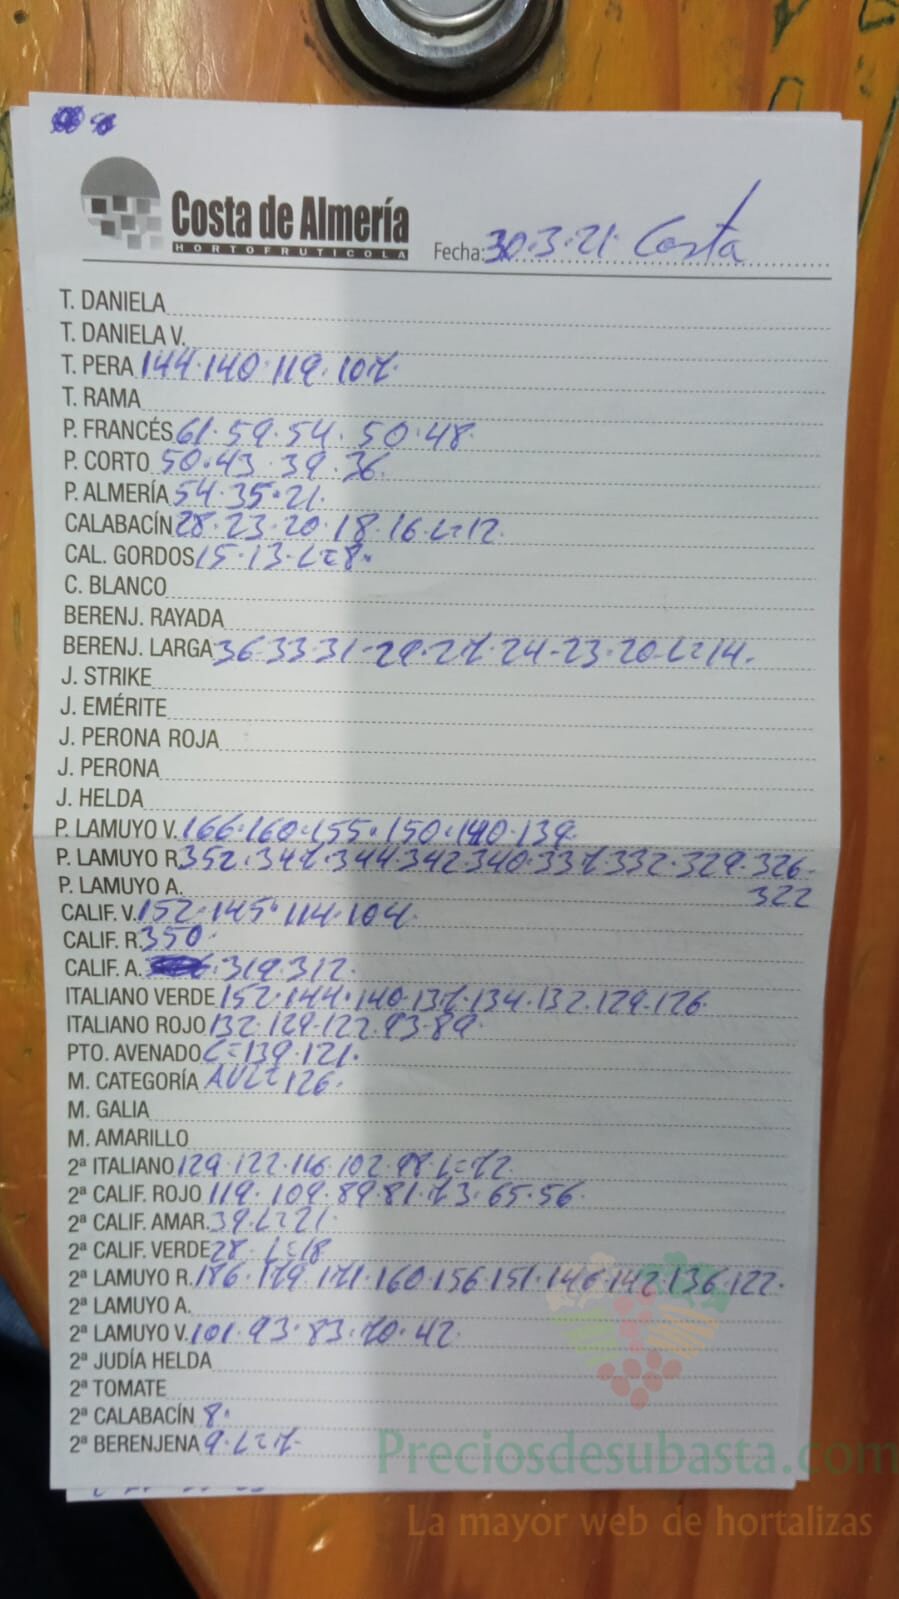 Costa de Almería
HORTOFRUTICOLA
Fecha: 30.3.21. Costa
T. DANIELA
T. DANIELA V.
T. PERA 144.140.119.107.
T. RAMA
P. FRANCÉS 61.59.54.50.48.
P. CORTO 50.43.39.36.
P. ALMERÍA 54.35.21.
CALABACÍN 28.23.20.18.16.L=12.
CAL. GORDOS 15.13.L=8.
C. BLANCO
BERENJ. RAYADA
BERENJ. LARGA 36-33-31-29.27.24-23.20-L=14.
J. STRIKE
J. EMÉRITE
J. PERONA ROJA
J. PERONA
J. HELDA
P. LAMUYO V. 166.160.155.150.140.139.
P. LAMUYO R. 352.347.344.342.340.337.332.329.326.
322
P. LAMUYO A.
CALIF. V. 152.145.114.104.
CALIF. R. 350.
CALIF. A. 319.312.
ITALIANO VERDE 152.144.140.137.134.132.129.126.
ITALIANO ROJO 132.129.122.93.89.
PTO. AVENADO C=139.121.
M. CATEGORÍA AVL=126.
M. GALIA
M. AMARILLO
2ª ITALIANO 129.122.116.102.98.L=72.
2ª CALIF. ROJO 119.109.89.81.73.65.56.
2ª CALIF. AMAR. 39.L=21.
2ª CALIF. VERDE 28.L=18
2ª LAMUYO R. 186.179.171.160.156.151.146.142.136.122.
2ª LAMUYO A.
2ª LAMUYO V. 101.93.83.70.42.
2ª JUDÍA HELDA
2ª TOMATE
2ª CALABACÍN 8.
2ª BERENJENA 9.L=7-
Preciosdesubasta.com
La mayor web de hortalizas